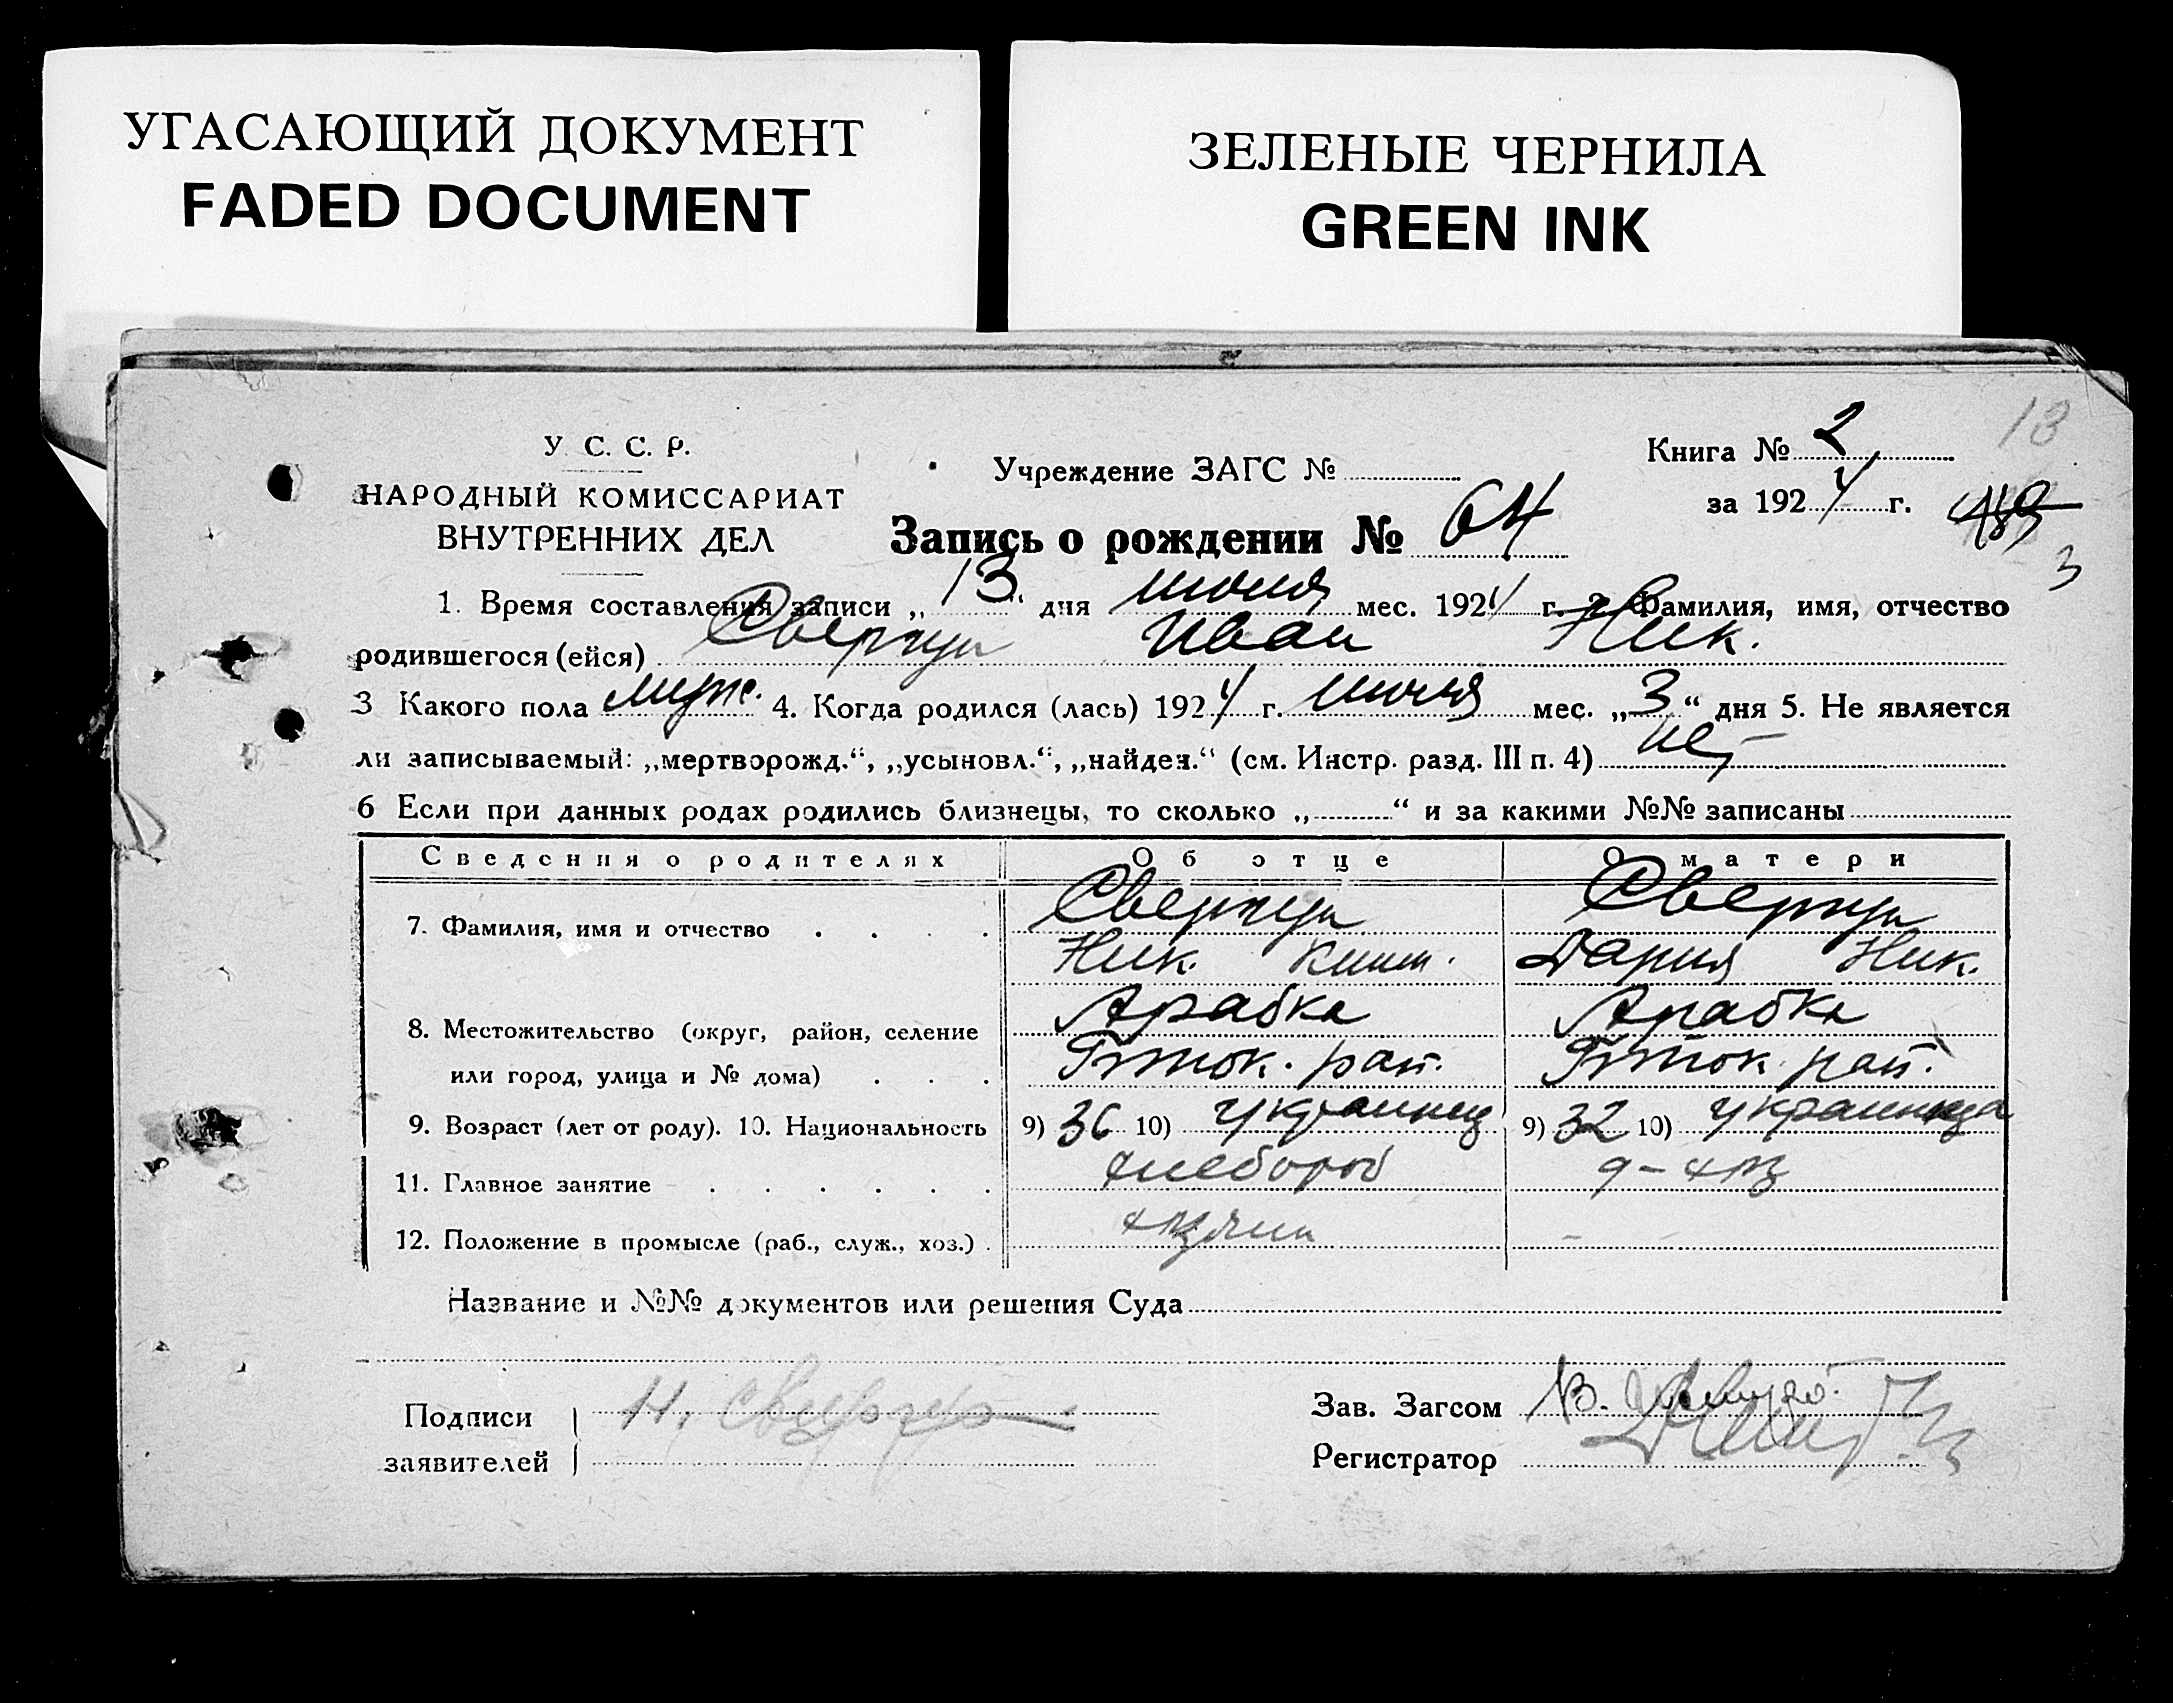 УГАСАЮЩИЙ ДОКУМЕНТ
FADED DOCUMENT
ЗЕЛЕНЫЕ ЧЕРНИЛА
GREEN INK
13
У. С. С. Р.
НАРОДНЫЙ КОМИССАРИАТ
ВНУТРЕННИХ ДЕЛ
Учреждение ЗАГС №
Книга № 2
за 1924 г.
Запись о рождении № 64
3
1. Время составления записи „13“ дня июля мес. 1924 г. 2. Фамилия, имя, отчество
родившегося (ейся) Иван Ник.
3 Какого пола муж. 4. Когда родился (лась) 1924 г. июля мес. „3“ дня 5. Не является
ли записываемый: „мертворожд.“, „усыновл.“, „найден.“ (см. Инстр. разд. III п. 4) нет
6 Если при данных родах родились близнецы, то сколько „ “ и за какими №№ записаны
Сведения о родителях Об отце О матери
7. Фамилия, имя и отчество
Ник. Дария Ник.
8. Местожительство (округ, район, селение Арабка Арабка
или город, улица и № дома) рай. рай.
9. Возраст (лет от роду). 10. Национальность 9) 36 10) украинец 9) 32 10) украинца
11. Главное занятие
12. Положение в промысле (раб., служ., хоз.)
Название и №№ документов или решения Суда
Подписи
заявителей
Н.
Зав. Загсом В.
Регистратор